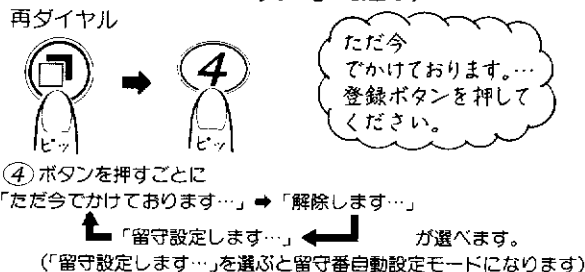 再ダイヤル
4
ピッ
ピッ
ただ今
でかけております。…
登録ボタンを押して
ください。
④ボタンを押すごとに
「ただ今でかけております…」➡「解除します…」
「留守設定します…」 が選べます。
(「留守設定します…」を選ぶと留守番自動設定モードになります)